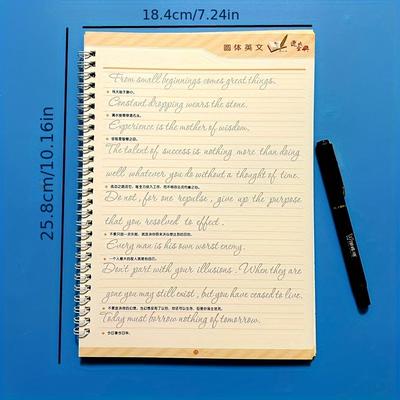 18.4cm/7.24in
25.8cm/10.16in
圆体英文
From small beginnings comes great things.
伟大始于渺小。
Constant dropping wears the stone.
滴水能够穿透石头。
Experience is the mother of wisdom.
The talent of success is nothing more than doing
well whatever you do without a thought of time.
Do not, for one repulse, give up the purpose
that you resolved to effect.
Every man is his own worst enemy.
一个人最大的敌人就是他自己。
Don't part with your illusions. When they are
gone you may still exist, but you have ceased to live.
Today must borrow nothing of tomorrow.
今日事今日毕。